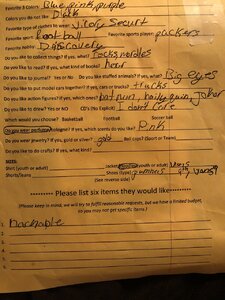 Favorite 3 Colors: Blue, pink, purple
Colors you do not like: Dark
Favorite type of clothes to wear: Victory Securt
Favorite sport: Football Favorite sports player: packers
Favorite hobby: Discovery
Do you like to collect things? If yes, what? Rocks, mordles
Do you like to read? If yes, what kind of books?
Do you like to journal? Yes or No Do you like stuffed animals? If yes, what? Big eyes
Do you like to put model cars together or puzzles? cars / trucks
Do you like action figures? If yes, which ones? bat man, harly quin, Joker
Do you like to draw? Yes or NO CD's I dont care
Which would you choose? Basketball Football Soccer ball
Do you wear perfume/colognes? If yes, which scents do you like? Pink
Do you wear jewelry? If yes, gold or silver Ball caps? (Sport or Team)
Do you like to do crafts? If yes, what kind?
SIZES:
Shirt (youth or adult) Jacket (youth or adult)
Shorts/Jeans Shoes (type)
(See reverse side)
Please list six items they would like
(Please keep in mind, we will try to fulfill reasonable requests, but we have a limited budget,
so you may not get specific items.)
1. Hachable
2.
3.
4.